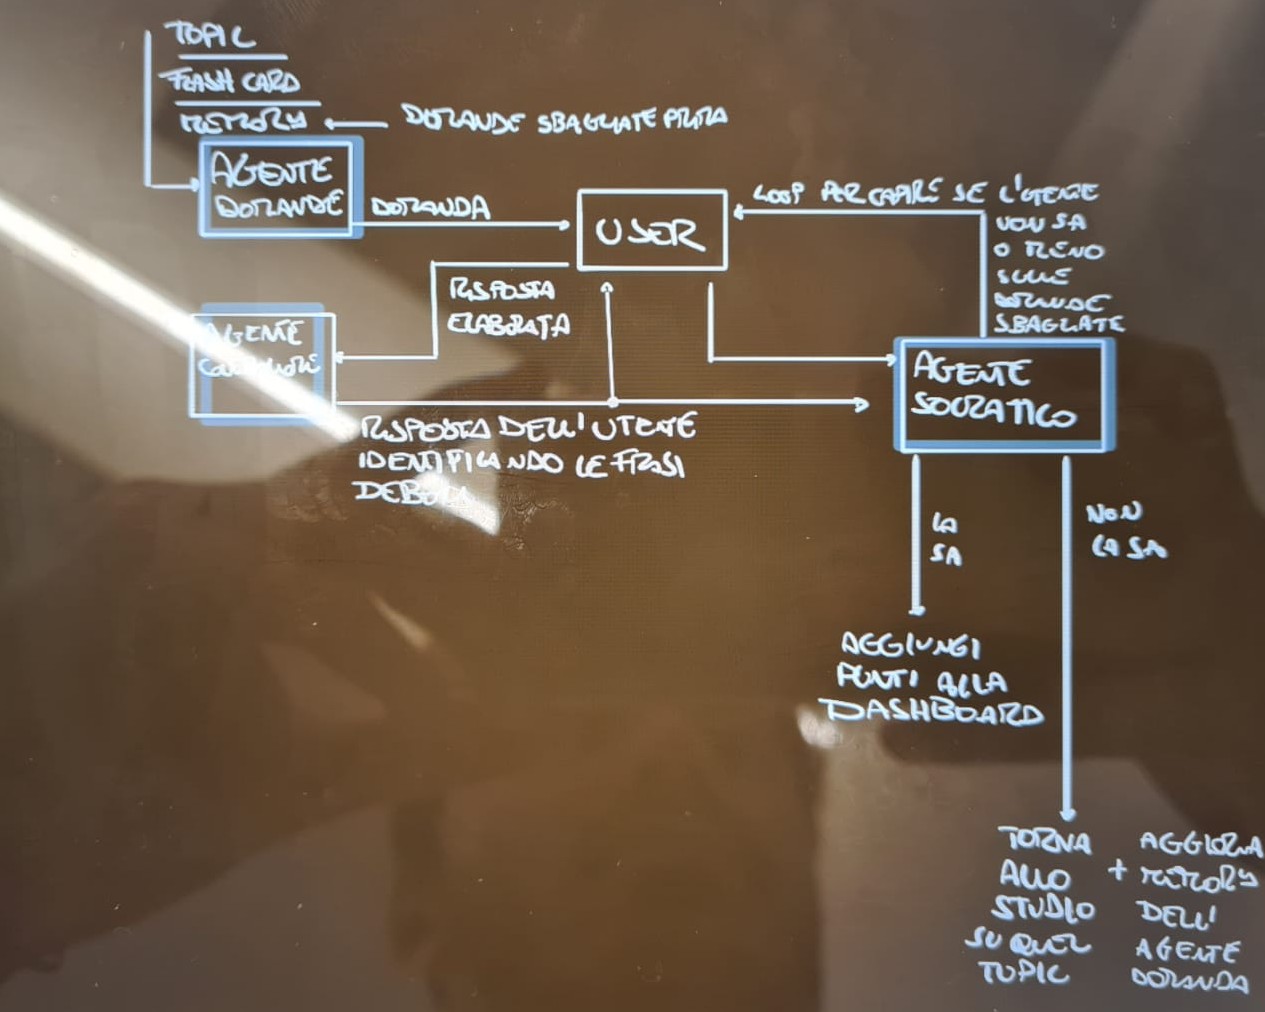 TOPIC
FLASH CARD
MEMORY
DOMANDE SBAGLIATE PRIMA
AGENTE
DOMANDE
DOMANDA
USER
LOOP PER CAPIRE SE L'UTENTE
NON SA
O MENO
SULLE
DOMANDE
SBAGLIATE
RISPOSTA
ELABORATA
AGENTE
AGENTE
SOCRATICO
RISPOSTA DELL'UTENTE
IDENTIFICANDO LE FRASI
DEBOLI
LA
SA
NON
LA SA
AGGIUNGI
PUNTI ALLA
DASHBOARD
TORNA
ALLO
STUDIO
SU QUEL
TOPIC
+
AGGIORNA
MEMORY
DELL'
AGENTE
DOMANDA